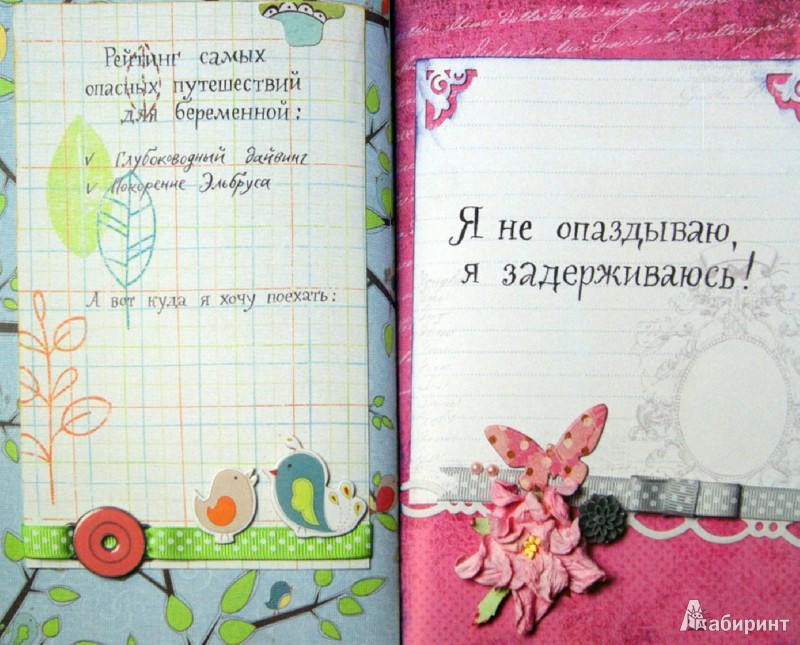 Рейтинг самых
опасных путешествий
для беременной:
v Глубоководный дайвинг
v Покорение Эльбруса
А вот куда я хочу поехать:
Я не опаздываю,
я задерживаюсь!
Лабиринт